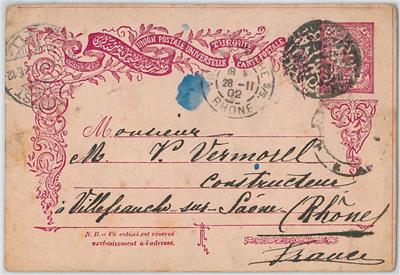 UNION POSTALE UNIVERSELLE
TURQUIE
CARTE POSTALE
28 -11
02
RHONE
Monsieur
M. V. Vermorel
Constructeur
à Villefranche-sur-Saône
(Rhône)
France
N.B.- Ce côté-ci est réservé
exclusivement à l'adresse.